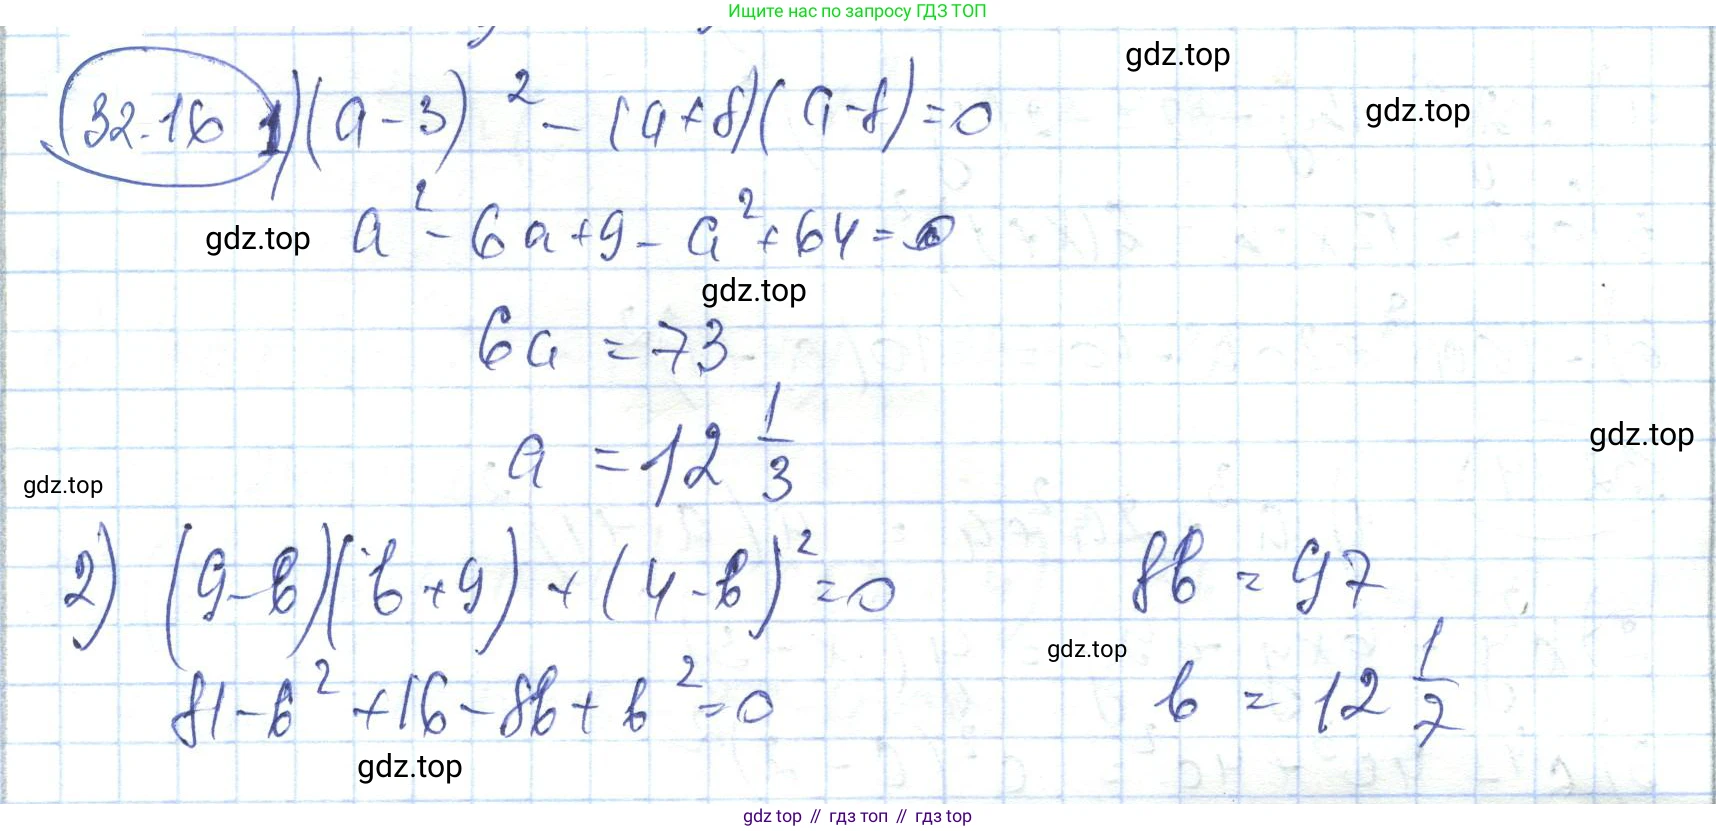 Ищите нас по запросу ГДЗ ТОП
gdz.top
32.16 1) (a-3)² - (a+8)(a-8)=0
gdz.top
gdz.top a² - 6a+9 - a² + 64 = 0
gdz.top
6a = 73
a = 12 1/3
gdz.top
gdz.top
2) (9-b)(b+9) + (4-b)² = 0
81-b² + 16 - 8b + b² = 0
gdz.top
8b = 97
gdz.top
b = 12 1/7
gdz top // гдз топ // гдз top